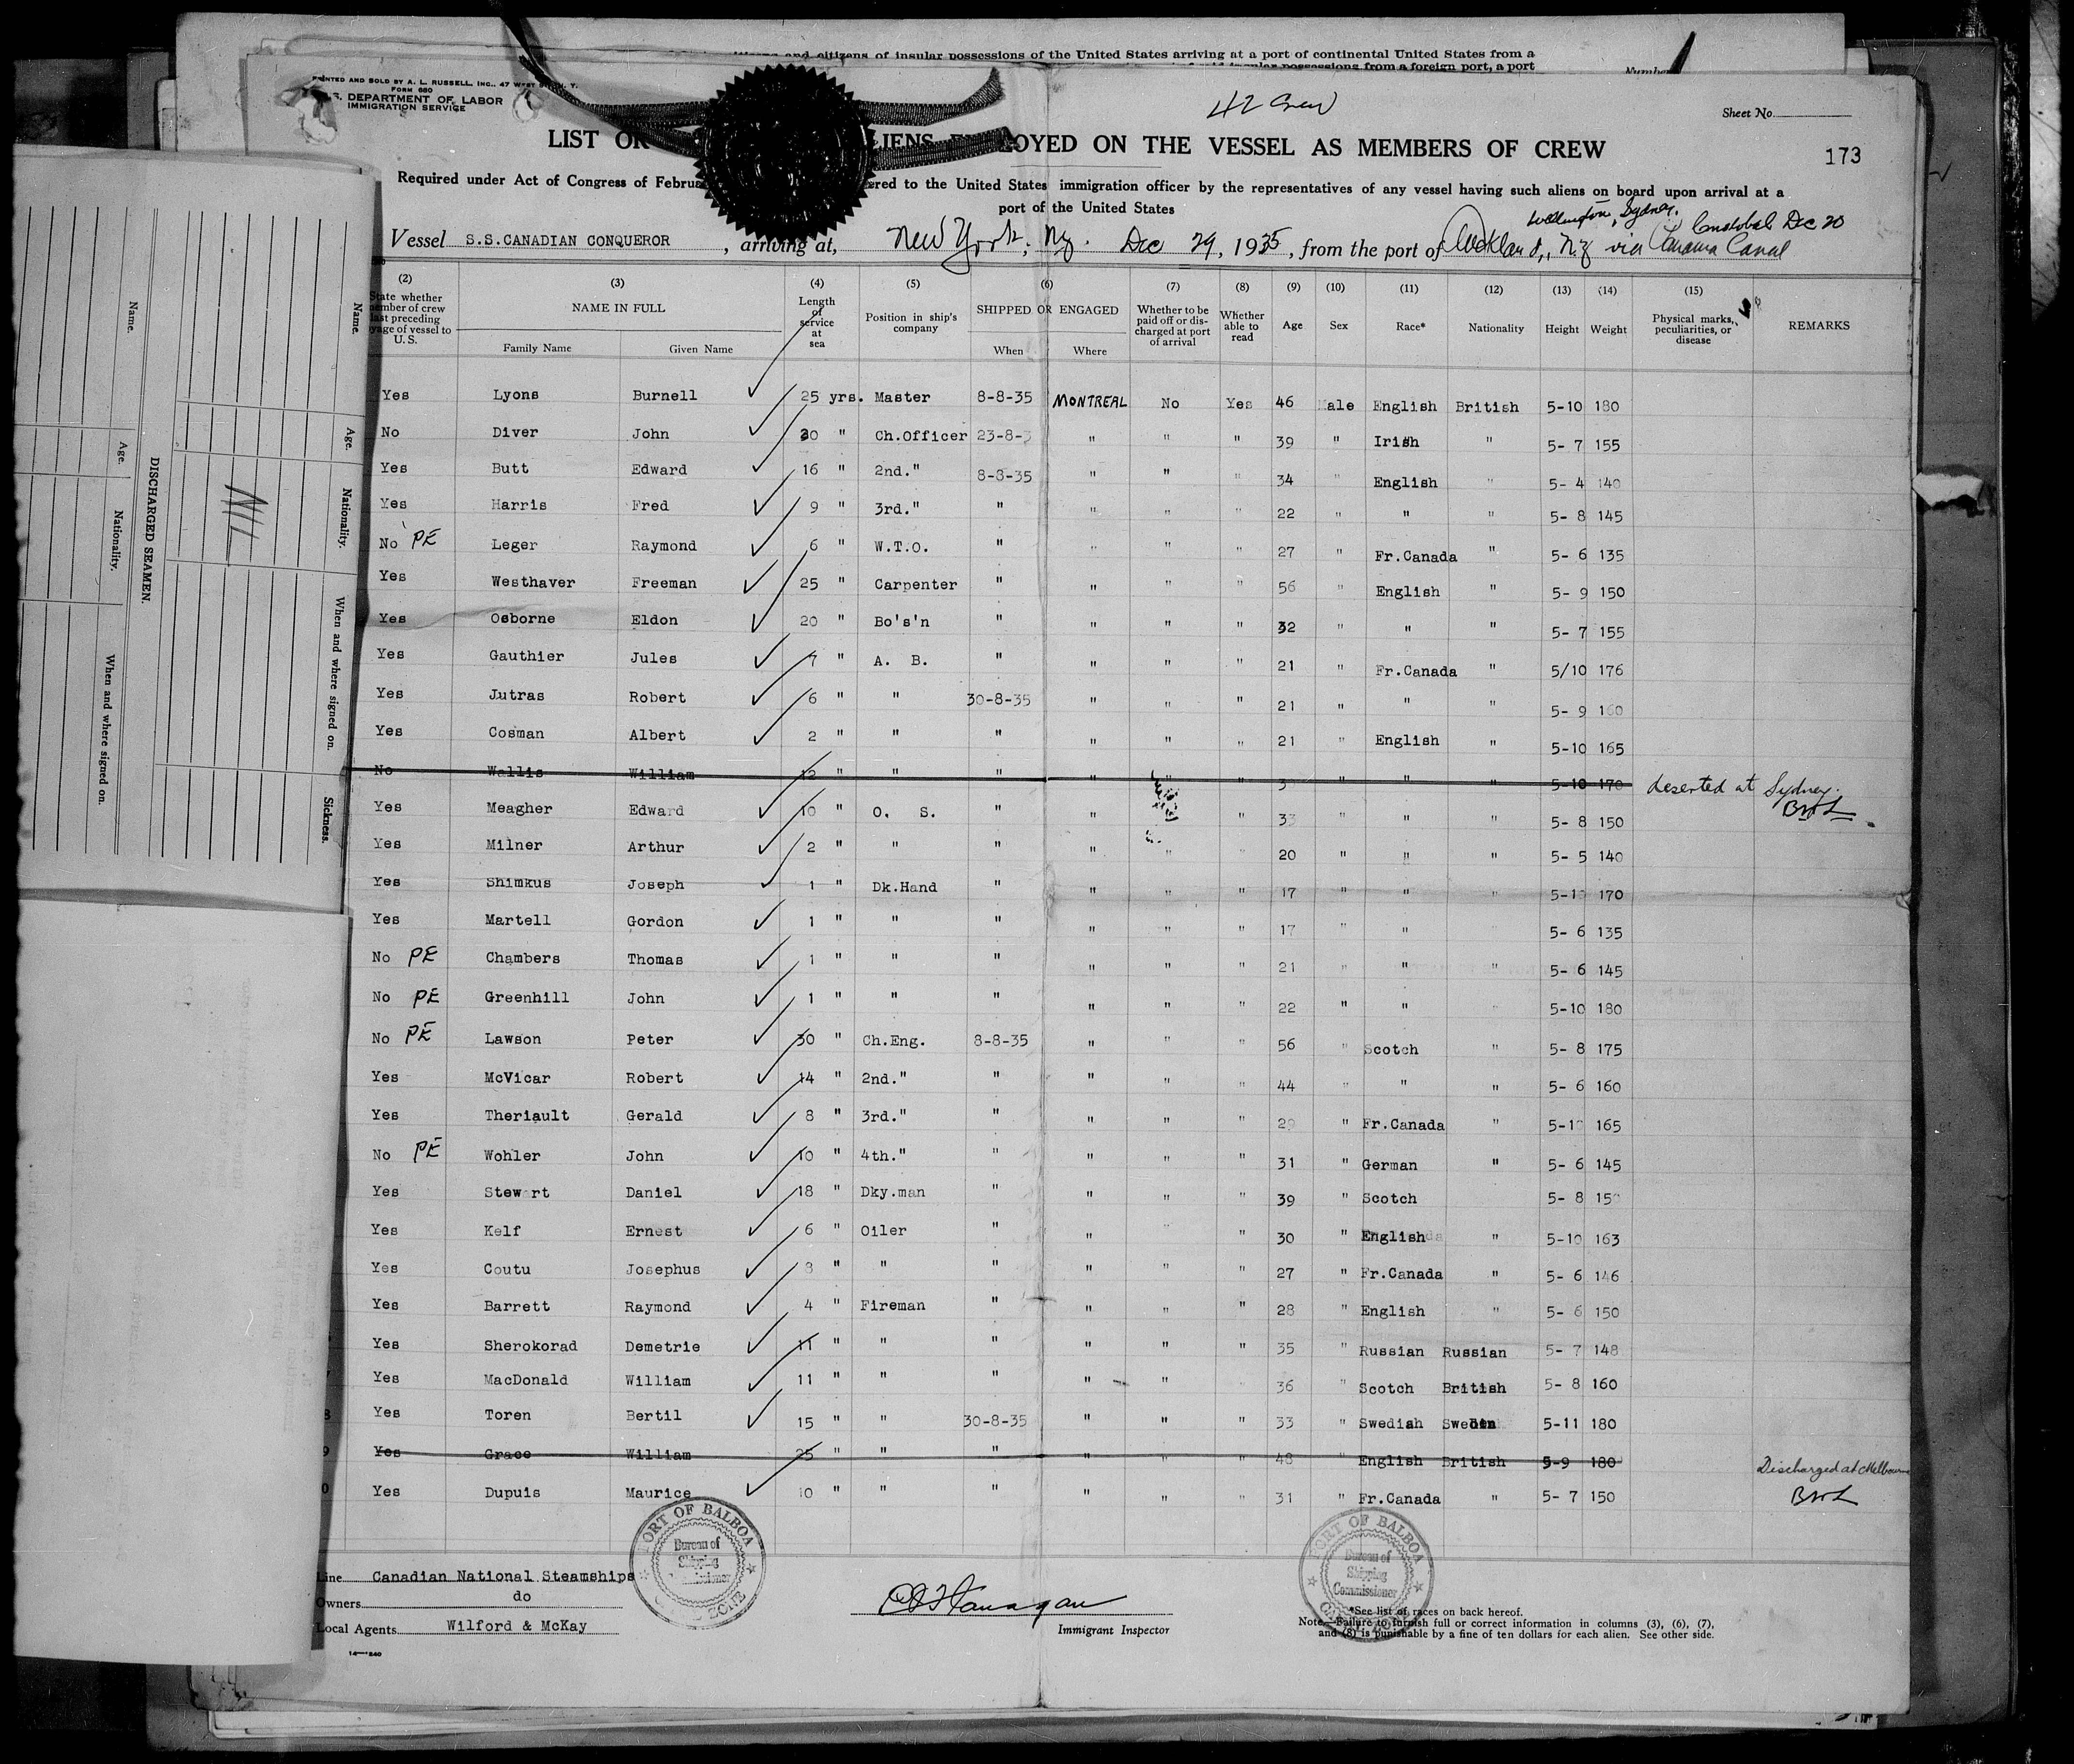 citizens and citizens of insular possessions of the United States arriving at a port of continental United States from a
insular possessions from a foreign port, a port
Number
PRINTED AND SOLD BY A. L. RUSSELL, INC., 47 WEST ST., N. Y.
FORM 680
S. DEPARTMENT OF LABOR
IMMIGRATION SERVICE
42 Crew
Sheet No.
LIST OR LIENS EMPLOYED ON THE VESSEL AS MEMBERS OF CREW
173
Required under Act of Congress of Februa ered to the United States immigration officer by the representatives of any vessel having such aliens on board upon arrival at a
port of the United States
Wellington, Sydney, Cristobal Dec 20
Vessel S.S.CANADIAN CONQUEROR, arriving at, New York, Ny. Dec 29, 1935, from the port of Auckland, N.Z via Panama Canal
(2) (3) (4) (5) (6) (7) (8) (9) (10) (11) (12) (13) (14) (15)
State whether member of crew last preceding voyage of vessel to U. S. NAME IN FULL Family Name Given Name Length of service at sea Position in ship's company SHIPPED OR ENGAGED When Where Whether to be paid off or discharged at port of arrival Whether able to read Age Sex Race* Nationality Height Weight Physical marks, peculiarities, or disease REMARKS
Yes Lyons Burnell 25 yrs. Master 8-8-35 MONTREAL No Yes 46 Male English British 5-10 180
No Diver John 20 " Ch.Officer 23-8-3 " " " 39 " Irish " 5- 7 155
Yes Butt Edward 16 " 2nd." 8-8-35 " " " 34 " English " 5- 4 140
Yes Harris Fred 9 " 3rd." " " " " 22 " " " 5- 8 145
No PE Leger Raymond 6 " W.T.O. " " " " 27 " Fr.Canada " 5- 6 135
Yes Westhaver Freeman 25 " Carpenter " " " " 56 " English " 5- 9 150
Yes Osborne Eldon 20 " Bo's'n " " " " 32 " " " 5- 7 155
Yes Gauthier Jules 7 " A. B. " " " " 21 " Fr.Canada " 5/10 176
Yes Jutras Robert 6 " " 30-8-35 " " " 21 " " " 5- 9 160
Yes Cosman Albert 2 " " " " " " 21 " English " 5-10 165
No Wallis William 12 " " " " " " 3 " " " 5-10 170 deserted at Sydney.
Yes Meagher Edward 10 " O. S. " " " 33 " " " 5- 8 150 BWL
Yes Milner Arthur 2 " " " " " " 20 " " " 5- 5 140
Yes Shimkus Joseph 1 " Dk.Hand " " " " 17 " " " 5-1 170
Yes Martell Gordon 1 " " " " " " 17 " " 5- 6 135
No PE Chambers Thomas 1 " " " " " " 21 " " " 5- 6 145
No PE Greenhill John 1 " " " " " " 22 " " " 5-10 180
No PE Lawson Peter 30 " Ch.Eng. 8-8-35 " " " 56 " Scotch " 5- 8 175
Yes McVicar Robert 14 " 2nd." " " " " 44 " " " 5- 6 160
Yes Theriault Gerald 8 " 3rd." " " " " 29 " Fr.Canada " 5-1 165
No PE Wohler John 10 " 4th." " " " " 31 " German " 5- 6 145
Yes Stewart Daniel 18 " Dky.man " " " " 39 " Scotch 5- 8 15
Yes Kelf Ernest 6 " Oiler " " " 30 " English " 5-10 163
Yes Coutu Josephus 8 " " " " " " 27 " Fr.Canada " 5- 6 146
Yes Barrett Raymond 4 " Fireman " " " " 28 " English " 5- 6 150
Yes Sherokorad Demetrie 11 " " " " " " 35 " Russian Russian 5- 7 148
Yes MacDonald William 11 " " " " " 36 " Scotch British 5- 8 160
8 Yes Toren Bertil 15 " " 30-8-35 " " " 33 " Swedish Sweden 5-11 180
9 Yes Grace William 25 " " " " " " 48 " English British 5-9 180 Discharged at Melbourne
0 Yes Dupuis Maurice 10 " " " " " " 31 " Fr.Canada " 5- 7 150 BWL
PORT OF BALBOA Bureau of Shipping Commissioner CANAL ZONE
PORT OF BALBOA Bureau of Shipping Commissioner CANAL ZONE
Line Canadian National Steamships
Owners do
Local Agents Wilford & McKay
Immigrant Inspector
*See list of races on back hereof.
Note.—Failure to furnish full or correct information in columns (3), (6), (7),
and (8) is punishable by a fine of ten dollars for each alien. See other side.
DISCHARGED SEAMEN.
Name. Age. Nationality. When and where signed on. Sickness.
NIL
Name. Age. Nationality. When and where signed on.